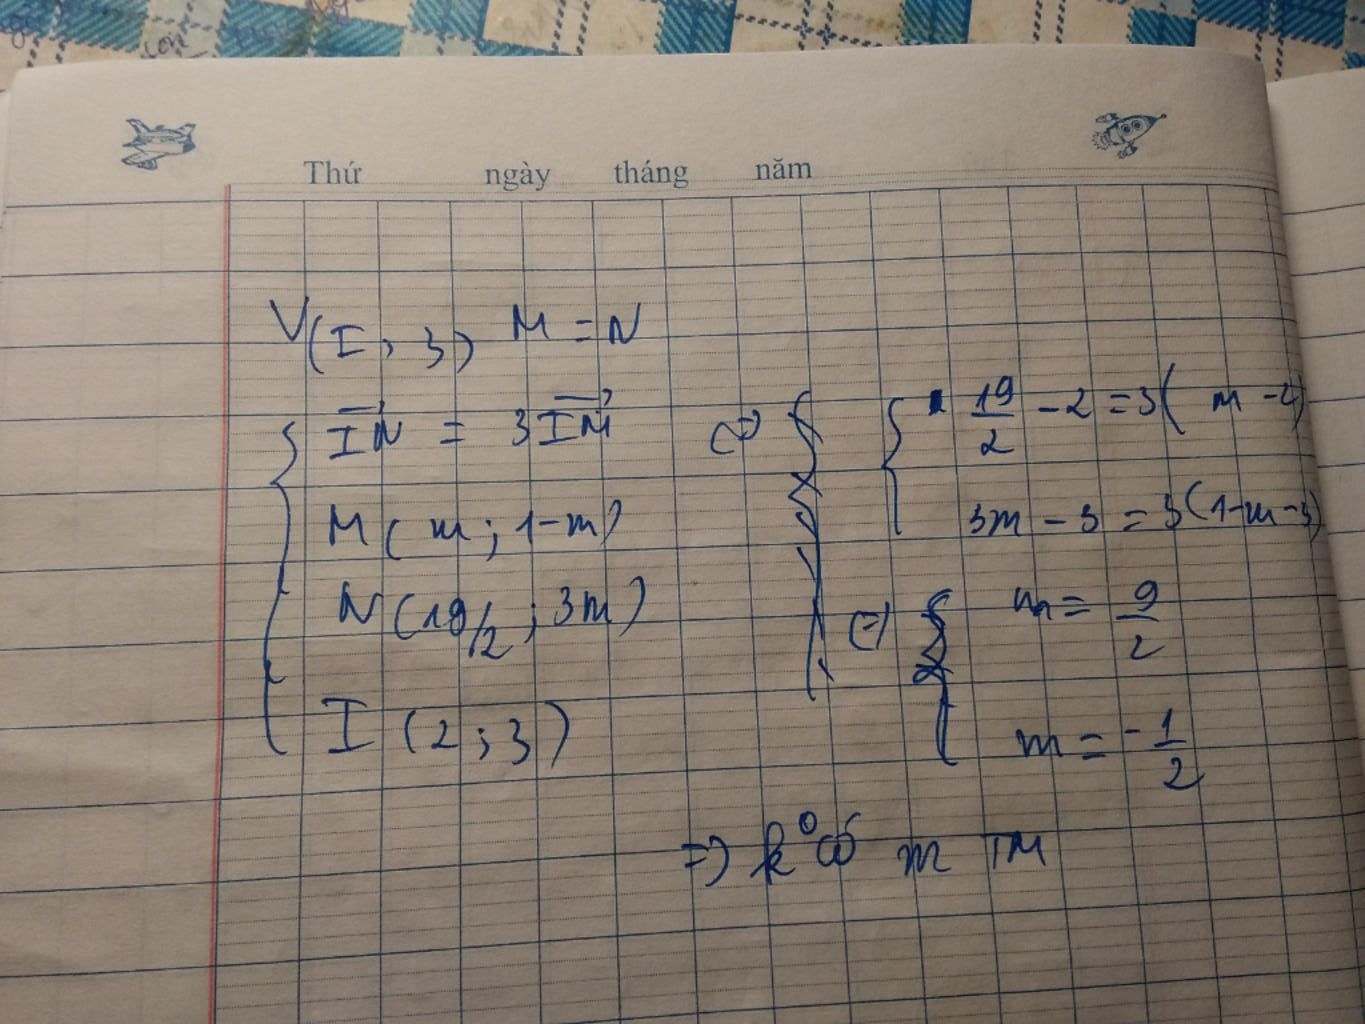 Thứ ngày tháng năm
V(I, 3) M = N
{ \overrightarrow{IN} = 3\overrightarrow{IM} <=>
M(m; 1-m)
N(19/2; 3m)
I (2; 3)
{ \frac{19}{2} - 2 = 3(m-2)
3m - 3 = 3(1-m-3)
<=> { m = \frac{9}{2}
m = -\frac{1}{2}
=> k⁰ có m TM